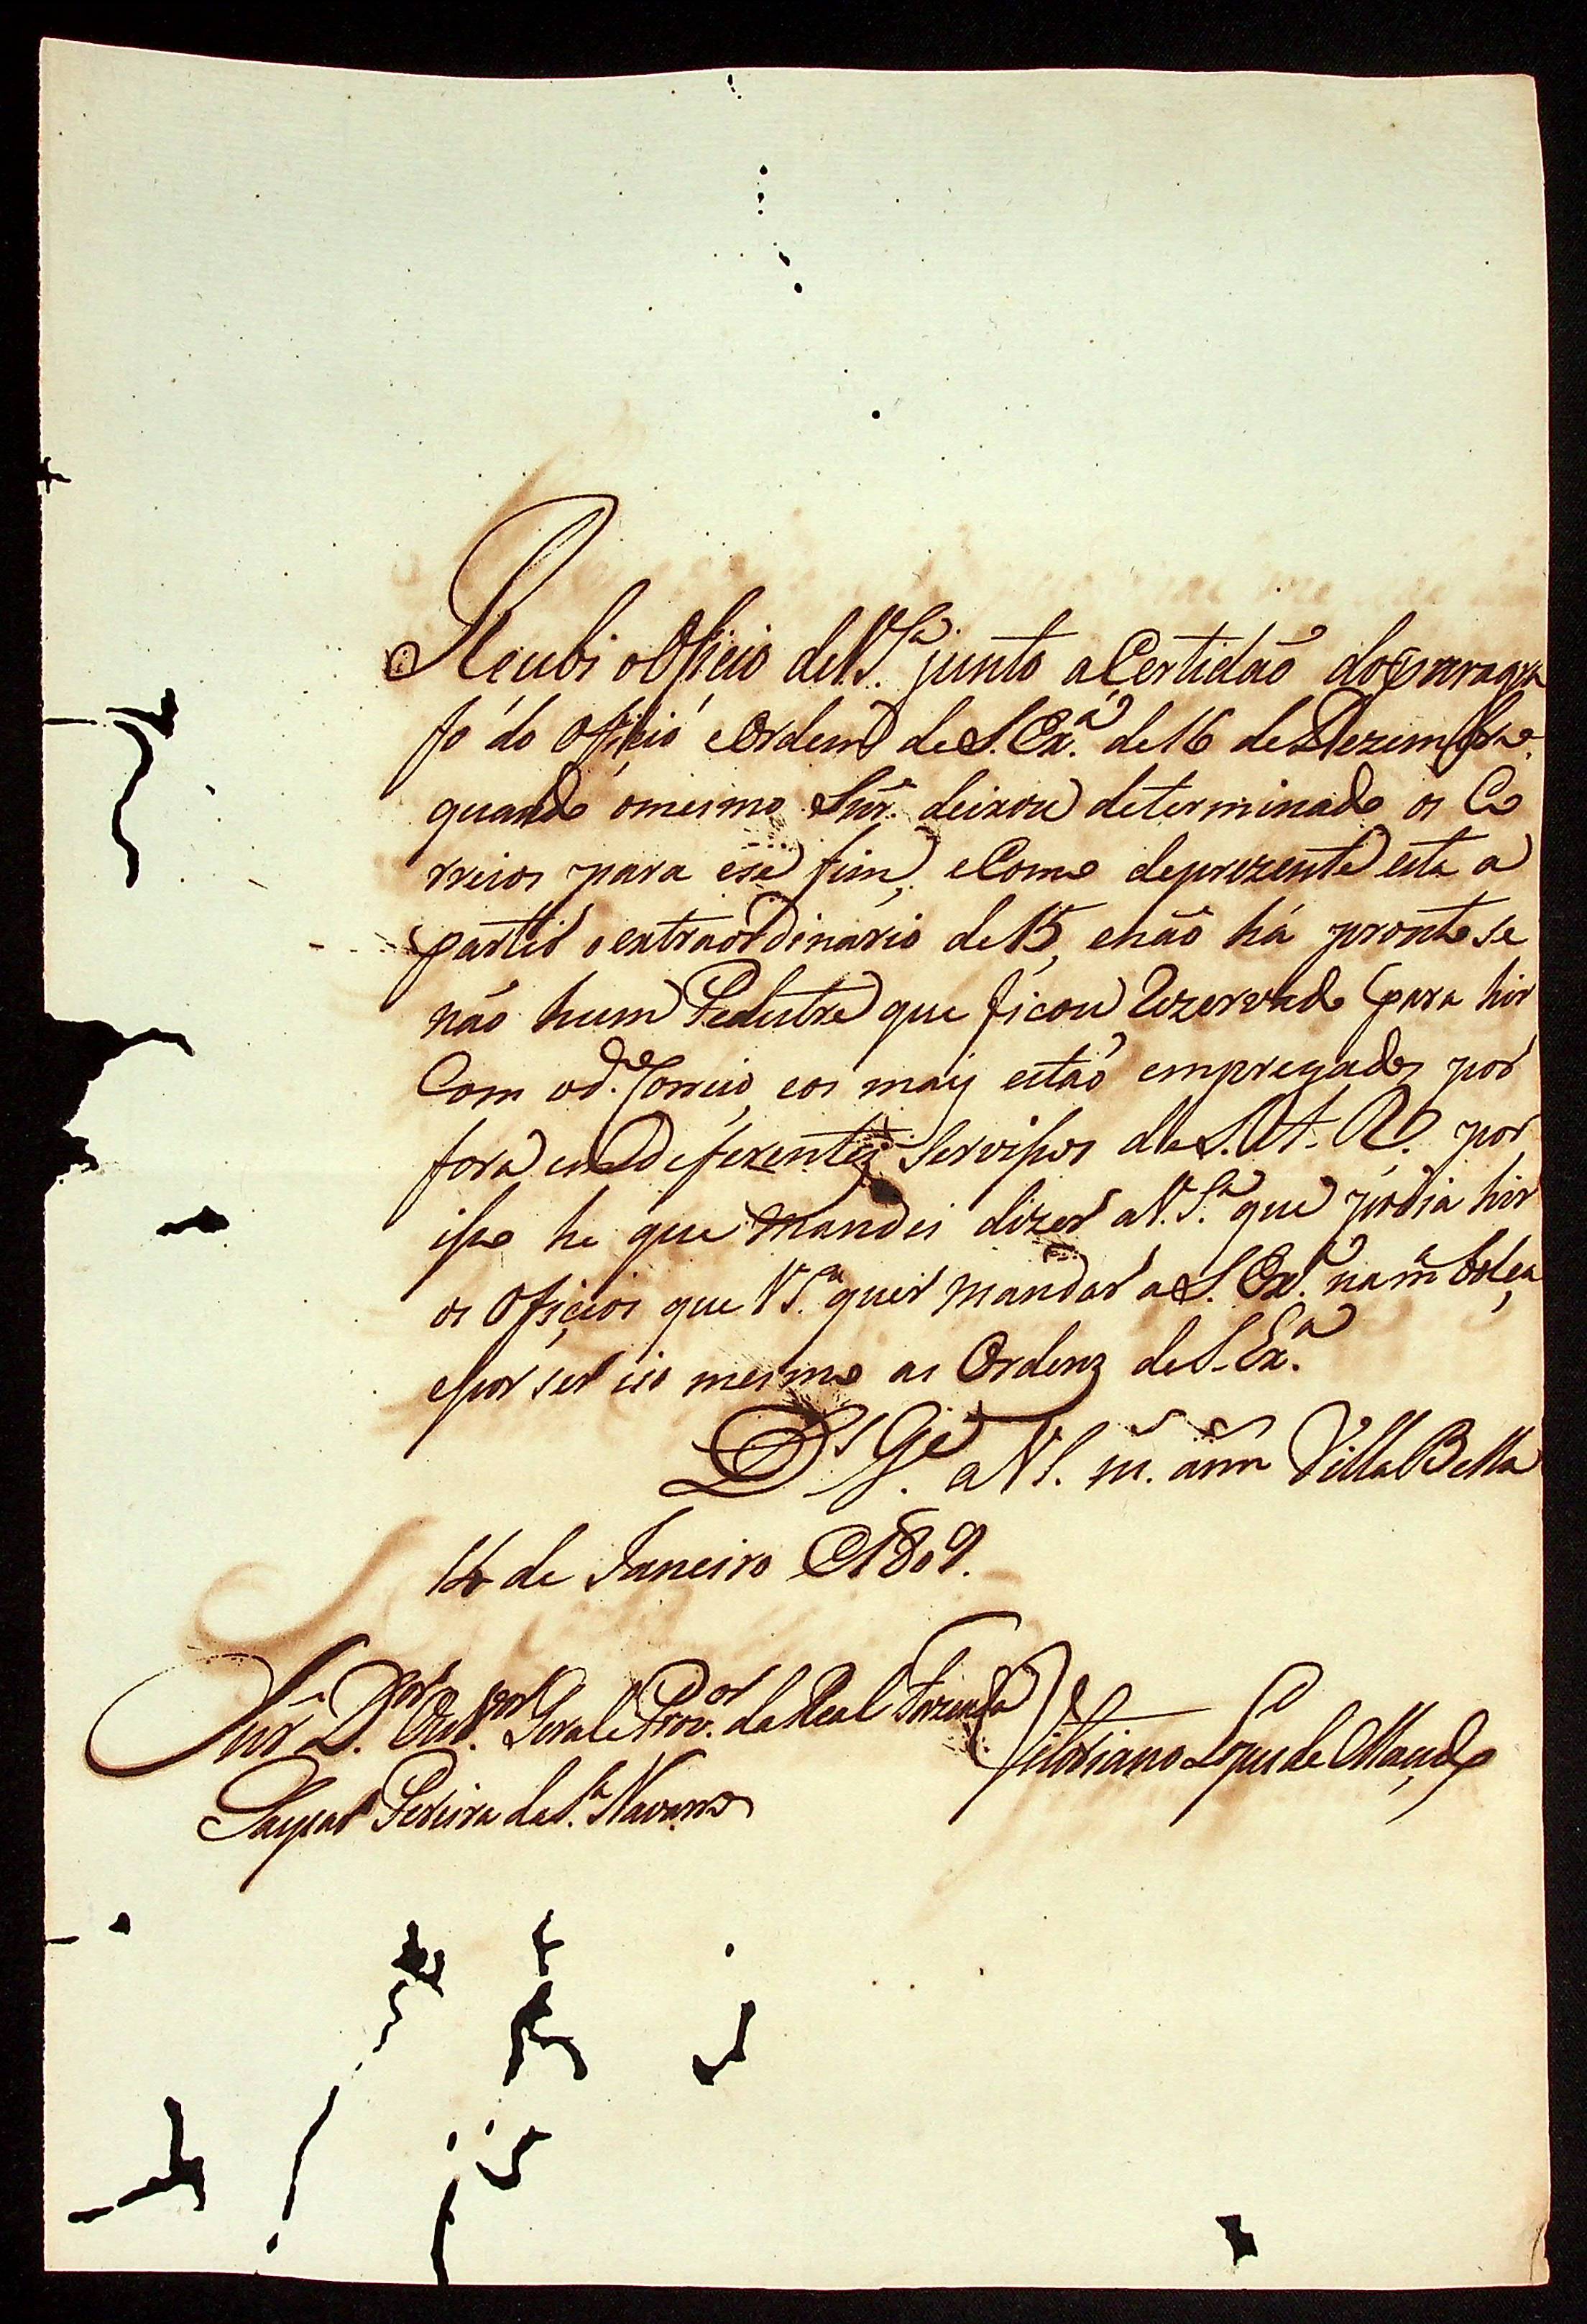 Recubi oOficio deV.Sa. junto aCertidaõ doparagra
fo do Oficio eOrdem de S.Exa. de 16 de Dezembro
quando omesmo Snr. deixou determinado os Co
rreios para ese fim, eComo deprezente esta a
partir oextraordinario de 15, enaõ há pronto se
naõ hum Pedestre que ficou Rezervado para hir
Com od.o Correio, eos mais estaõ empregados por
fora emDiferentes Servissos de S.A.R. por
isso he que mandei dizer aV.Sa. que podia hir
os Oficios que V.Sa. quer mandar a S.Exa. nam.a bolça
epor ser iso mesmo as Ordens deS.Exa.
Ds. Ge. aV.S. m. ann Villa Bella
14 de Janeiro de 1809.
Snr. Dor. Ouvor. Geral e Provor. da Real Fazenda
Gaspar Pereira da Sa. Navarro
Vitoriano Lopes de Macedo